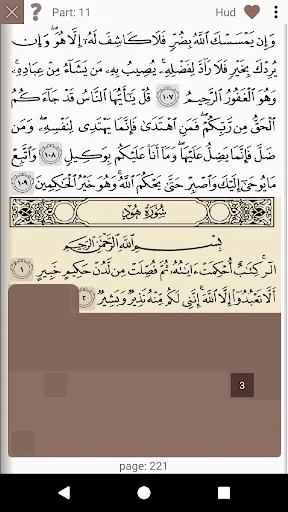 Part: 11
Hud
وَإِن يَمْسَسْكَ ٱللَّهُ بِضُرٍّ فَلَا كَاشِفَ لَهُۥٓ إِلَّا هُوَ ۖ وَإِن
يُرِدْكَ بِخَيْرٍ فَلَا رَآدَّ لِفَضْلِهِۦ ۚ يُصِيبُ بِهِۦ مَن يَشَآءُ مِنْ عِبَادِهِۦ ۚ
وَهُوَ ٱلْغَفُورُ ٱلرَّحِيمُ ١٠٧ قُلْ يَٰٓأَيُّهَا ٱلنَّاسُ قَدْ جَآءَكُمُ
ٱلْحَقُّ مِن رَّبِّكُمْ ۖ فَمَنِ ٱهْتَدَىٰ فَإِنَّمَا يَهْتَدِى لِنَفْسِهِۦ ۖ وَمَن
ضَلَّ فَإِنَّمَا يَضِلُّ عَلَيْهَا ۖ وَمَآ أَنَا۠ عَلَيْكُم بِوَكِيلٍ ١٠٨ وَٱتَّبِعْ
مَا يُوحَىٰٓ إِلَيْكَ وَٱصْبِرْ حَتَّىٰ يَحْكُمَ ٱللَّهُ ۚ وَهُوَ خَيْرُ ٱلْحَٰكِمِينَ ١٠٩
سُورَةُ هُودٍ
بِسْمِ ٱللَّهِ ٱلرَّحْمَٰنِ ٱلرَّحِيمِ
الٓر ۚ كِتَٰبٌ أُحْكِمَتْ ءَايَٰتُهُۥ ثُمَّ فُصِّلَتْ مِن لَّدُنْ حَكِيمٍ خَبِيرٍ ١
أَلَّا تَعْبُدُوٓا۟ إِلَّا ٱللَّهَ ۚ إِنَّنِى لَكُم مِّنْهُ نَذِيرٌ وَبَشِيرٌ ٢
3
page: 221